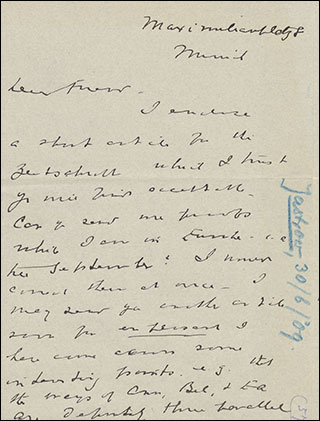 Maximilianspl. 8
Munich
Dear Friend -
I enclose
a short article for the
Zeitschrift which I trust
you will find acceptable.
Can you send me proofs
while I am in Europe - i.e.
September? I
correct them at once - I
may send you another article
soon for
have come some
interesting points e.g. that
the ways of Anu, Bel, & Ea
are definitely three parallel
Jastrow, 30/6/09.